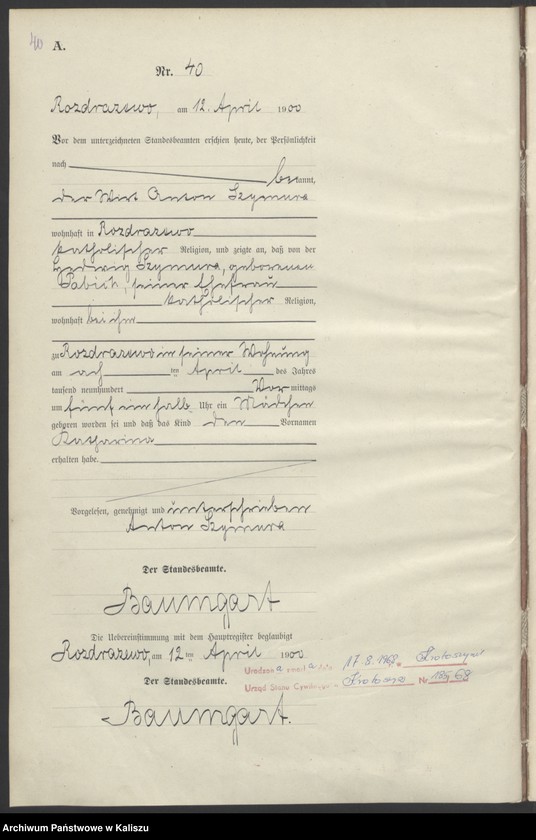 40 A.
Nr. 40
Rozdrazewo, am 12. April 1900
Vor dem unterzeichneten Standesbeamten erschien heute, der Persönlichkeit
nach bekannt,
der Wirt Anton Szymura
wohnhaft in Rozdrazewo
katholischer Religion, und zeigte an, daß von der
Hedwig Szymura, geborenen
Pabich, seiner Ehefrau
katholischer Religion,
wohnhaft bei ihm
zu Rozdrazewo in seiner Wohnung
am acht ten April des Jahres
tausend neunhundert Vor mittags
um fünf ein halb Uhr ein Mädchen
geboren worden sei und daß das Kind den Vornamen
Katharina
erhalten habe.
Vorgelesen, genehmigt und unterschrieben
Anton Szymura
Der Standesbeamte.
Baumgart
Die Uebereinstimmung mit dem Hauptregister beglaubigt
Rozdrazewo, am 12 ten April 1900
Der Standesbeamte.
Baumgart.
17.8.1968 Krotoszyn
Urząd Stanu Cywilnego Krotoszyn Nr
Archiwum Państwowe w Kaliszu